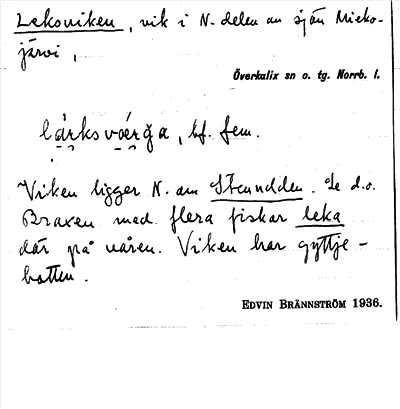 Leksviken, vik i N. delen av sjön Mieko-
järvi,
Överkalix sn o. tg. Norrb. l.
bf. fem.
Viken ligger N. om Stenudden. Se d.o.
Braxen med flera fiskar leka
där på våren. Viken har gyttje-
botten.
EDVIN BRÄNNSTRÖM 1936.